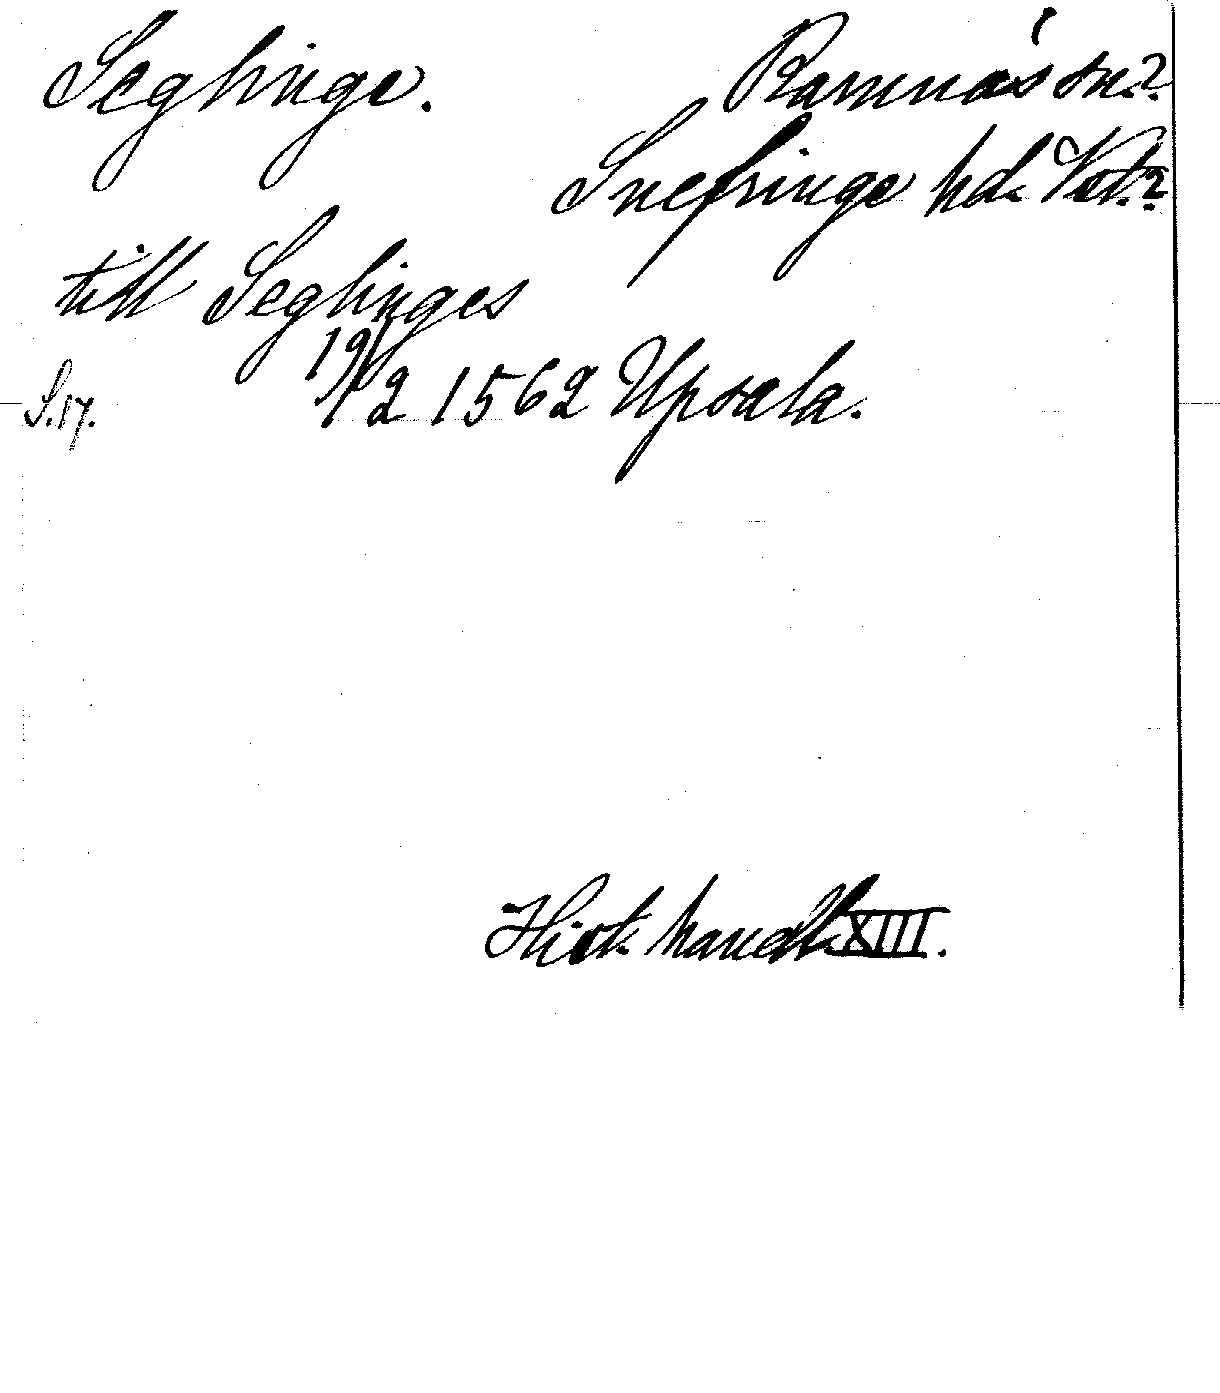 Seglinge. Ramnäs sn.?
Snefringe hd. Vstm.?
till Seglinges
19/2 1562 Upsala.
S.17.
Hist. handl. XIII.